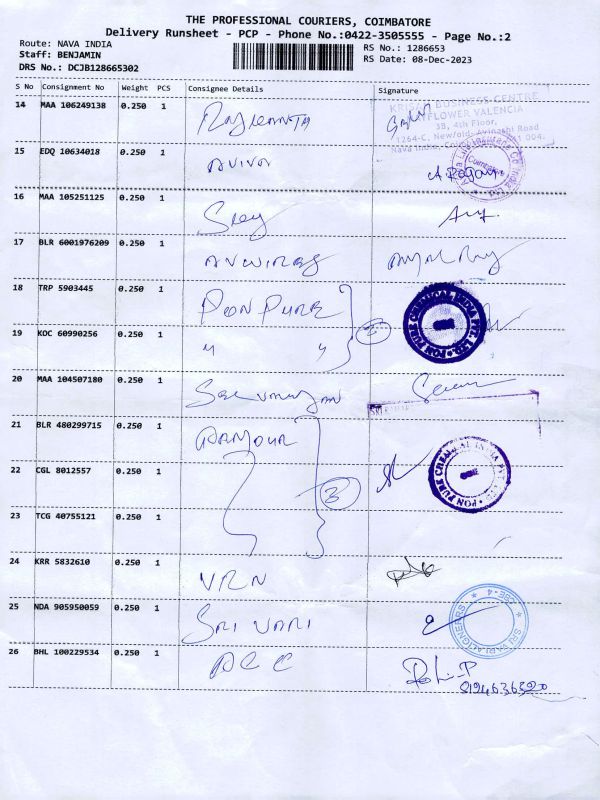 THE PROFESSIONAL COURIERS, COIMBATORE
Delivery Runsheet - PCP - Phone No.:0422-3505555 - Page No.:2
Route: NAVA INDIA
RS No.: 1286653
Staff: BENJAMIN
RS Date: 08-Dec-2023
DRS No.: DCJB128665302
S No Consignment No Weight PCS Consignee Details Signature
14 MAA 106249138 0.250 1
KRISHNA BUSINESS CENTRE
MAYFLOWER VALENCIA
3B, 4th Floor,
1264-C, New/old, Avinashi Road
15 EDQ 10634018 0.250 1 AVIVA
16 MAA 105251125 0.250 1
17 BLR 6001976209 0.250 1
18 TRP 5903445 0.250 1 PON PURE
PON PURE CHEMICAL INDIA PVT. LTD.
19 KOC 60990256 0.250 1 " " 2
20 MAA 104507180 0.250 1
21 BLR 480299715 0.250 1
PON PURE CHEMICAL INDIA PVT. LTD.
22 CGL 8012557 0.250 1 3
23 TCG 40755121 0.250 1
24 KRR 5832610 0.250 1 VRN
25 NDA 905950059 0.250 1 SRI VARI
SRI VARI ALIGNERS
CBE-4
26 BHL 100229534 0.250 1 ACC